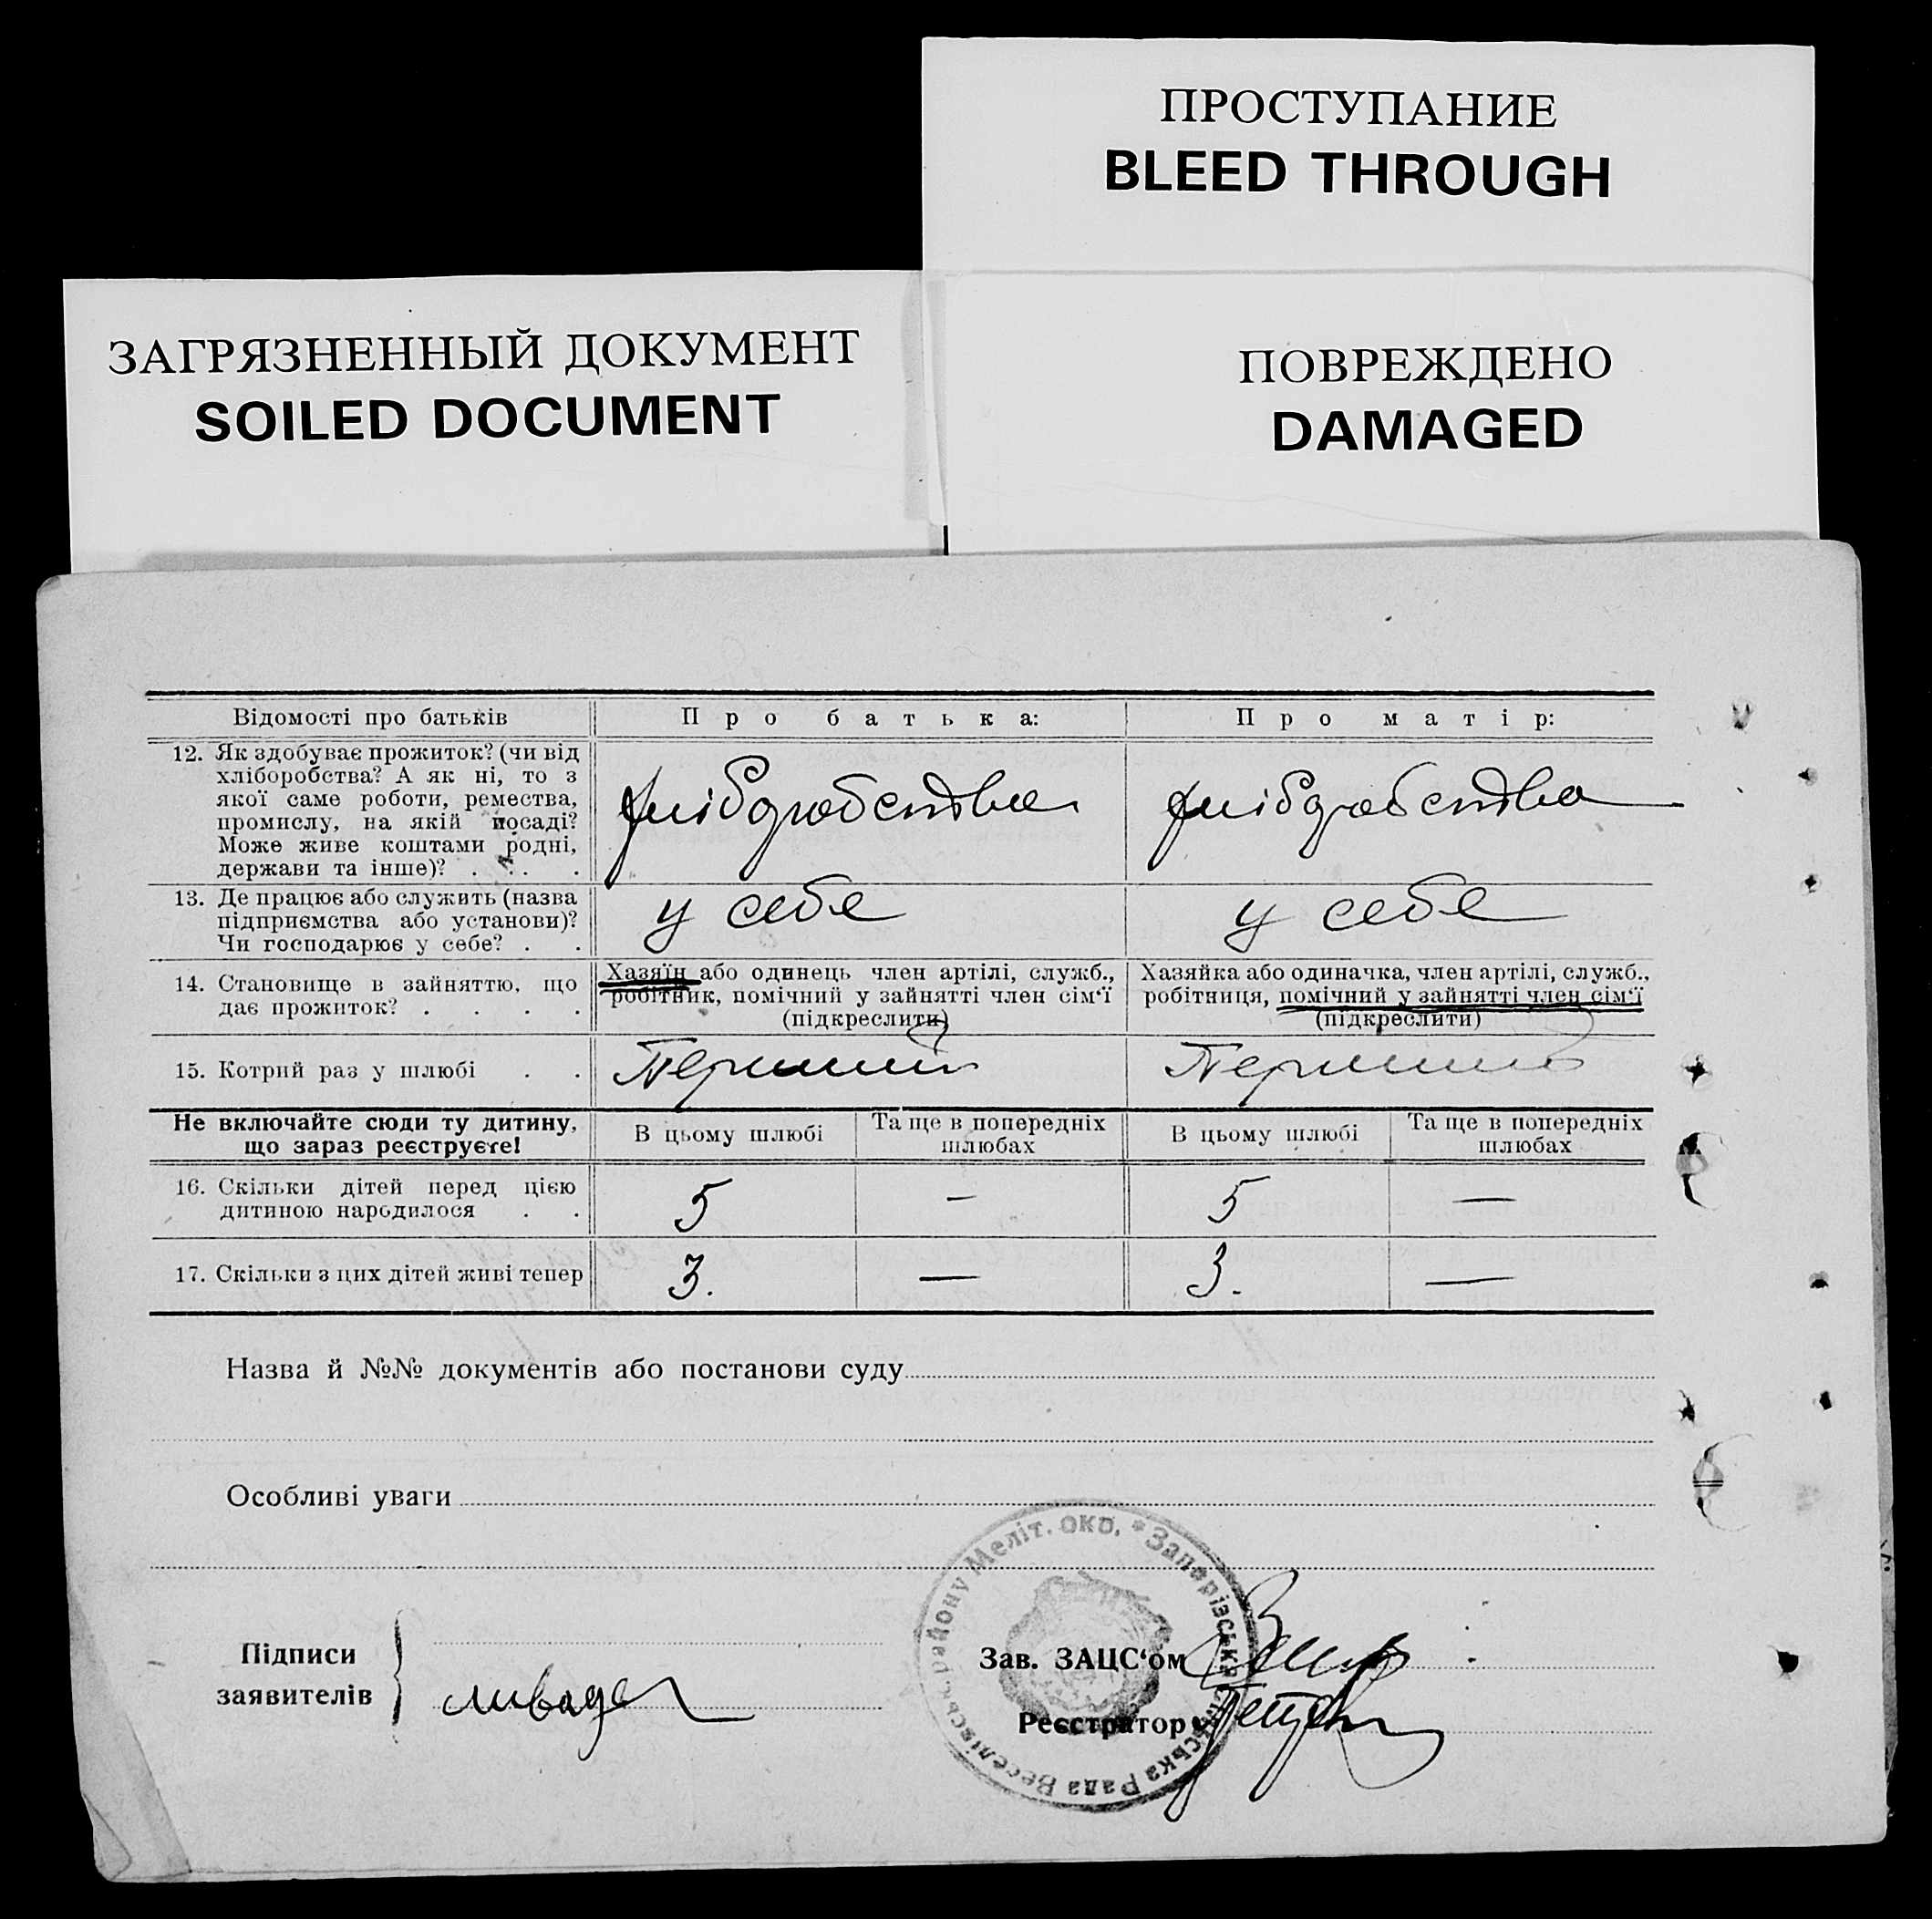 ПРОСТУПАНИЕ
BLEED THROUGH
ЗАГРЯЗНЕННЫЙ ДОКУМЕНТ
SOILED DOCUMENT
ПОВРЕЖДЕНО
DAMAGED
Відомості про батьків
Про батька:
Про матір:
12. Як здобуває прожиток? (чи від
хліборобства? А як ні, то з
якої саме роботи, ремества,
промислу, на якій посаді?
Може живе коштами родні,
держави та інше)? . . . .
хліборобство
хліборобство
13. Де працює або служить (назва
підприємства або установи)?
Чи господарює у себе? . .
у себе
у себе
14. Становище в зайняттю, що
дає прожиток? . . . .
Хазяїн або одинець член артілі, служб.,
робітник, помічний у зайнятті член сім'ї
(підкреслити)
Хазяйка або одиначка, член артілі, служб.,
робітниця, помічний у зайнятті член сім'ї
(підкреслити)
15. Котрий раз у шлюбі . .
Перший
Перший
Не включайте сюди ту дитину,
що зараз реєструєте!
В цьому шлюбі
Та ще в попередніх
шлюбах
В цьому шлюбі
Та ще в попередніх
шлюбах
16. Скільки дітей перед цією
дитиною народилося . .
5
—
5
—
17. Скільки з цих дітей живі тепер
3.
—
3.
—
Назва й №№ документів або постанови суду
Особливі уваги
Підписи
заявителів
Зав. ЗАЦС'ом
Реєстратор
Запорізська Сільська Рада Веселівськ. району Меліт. окр. *